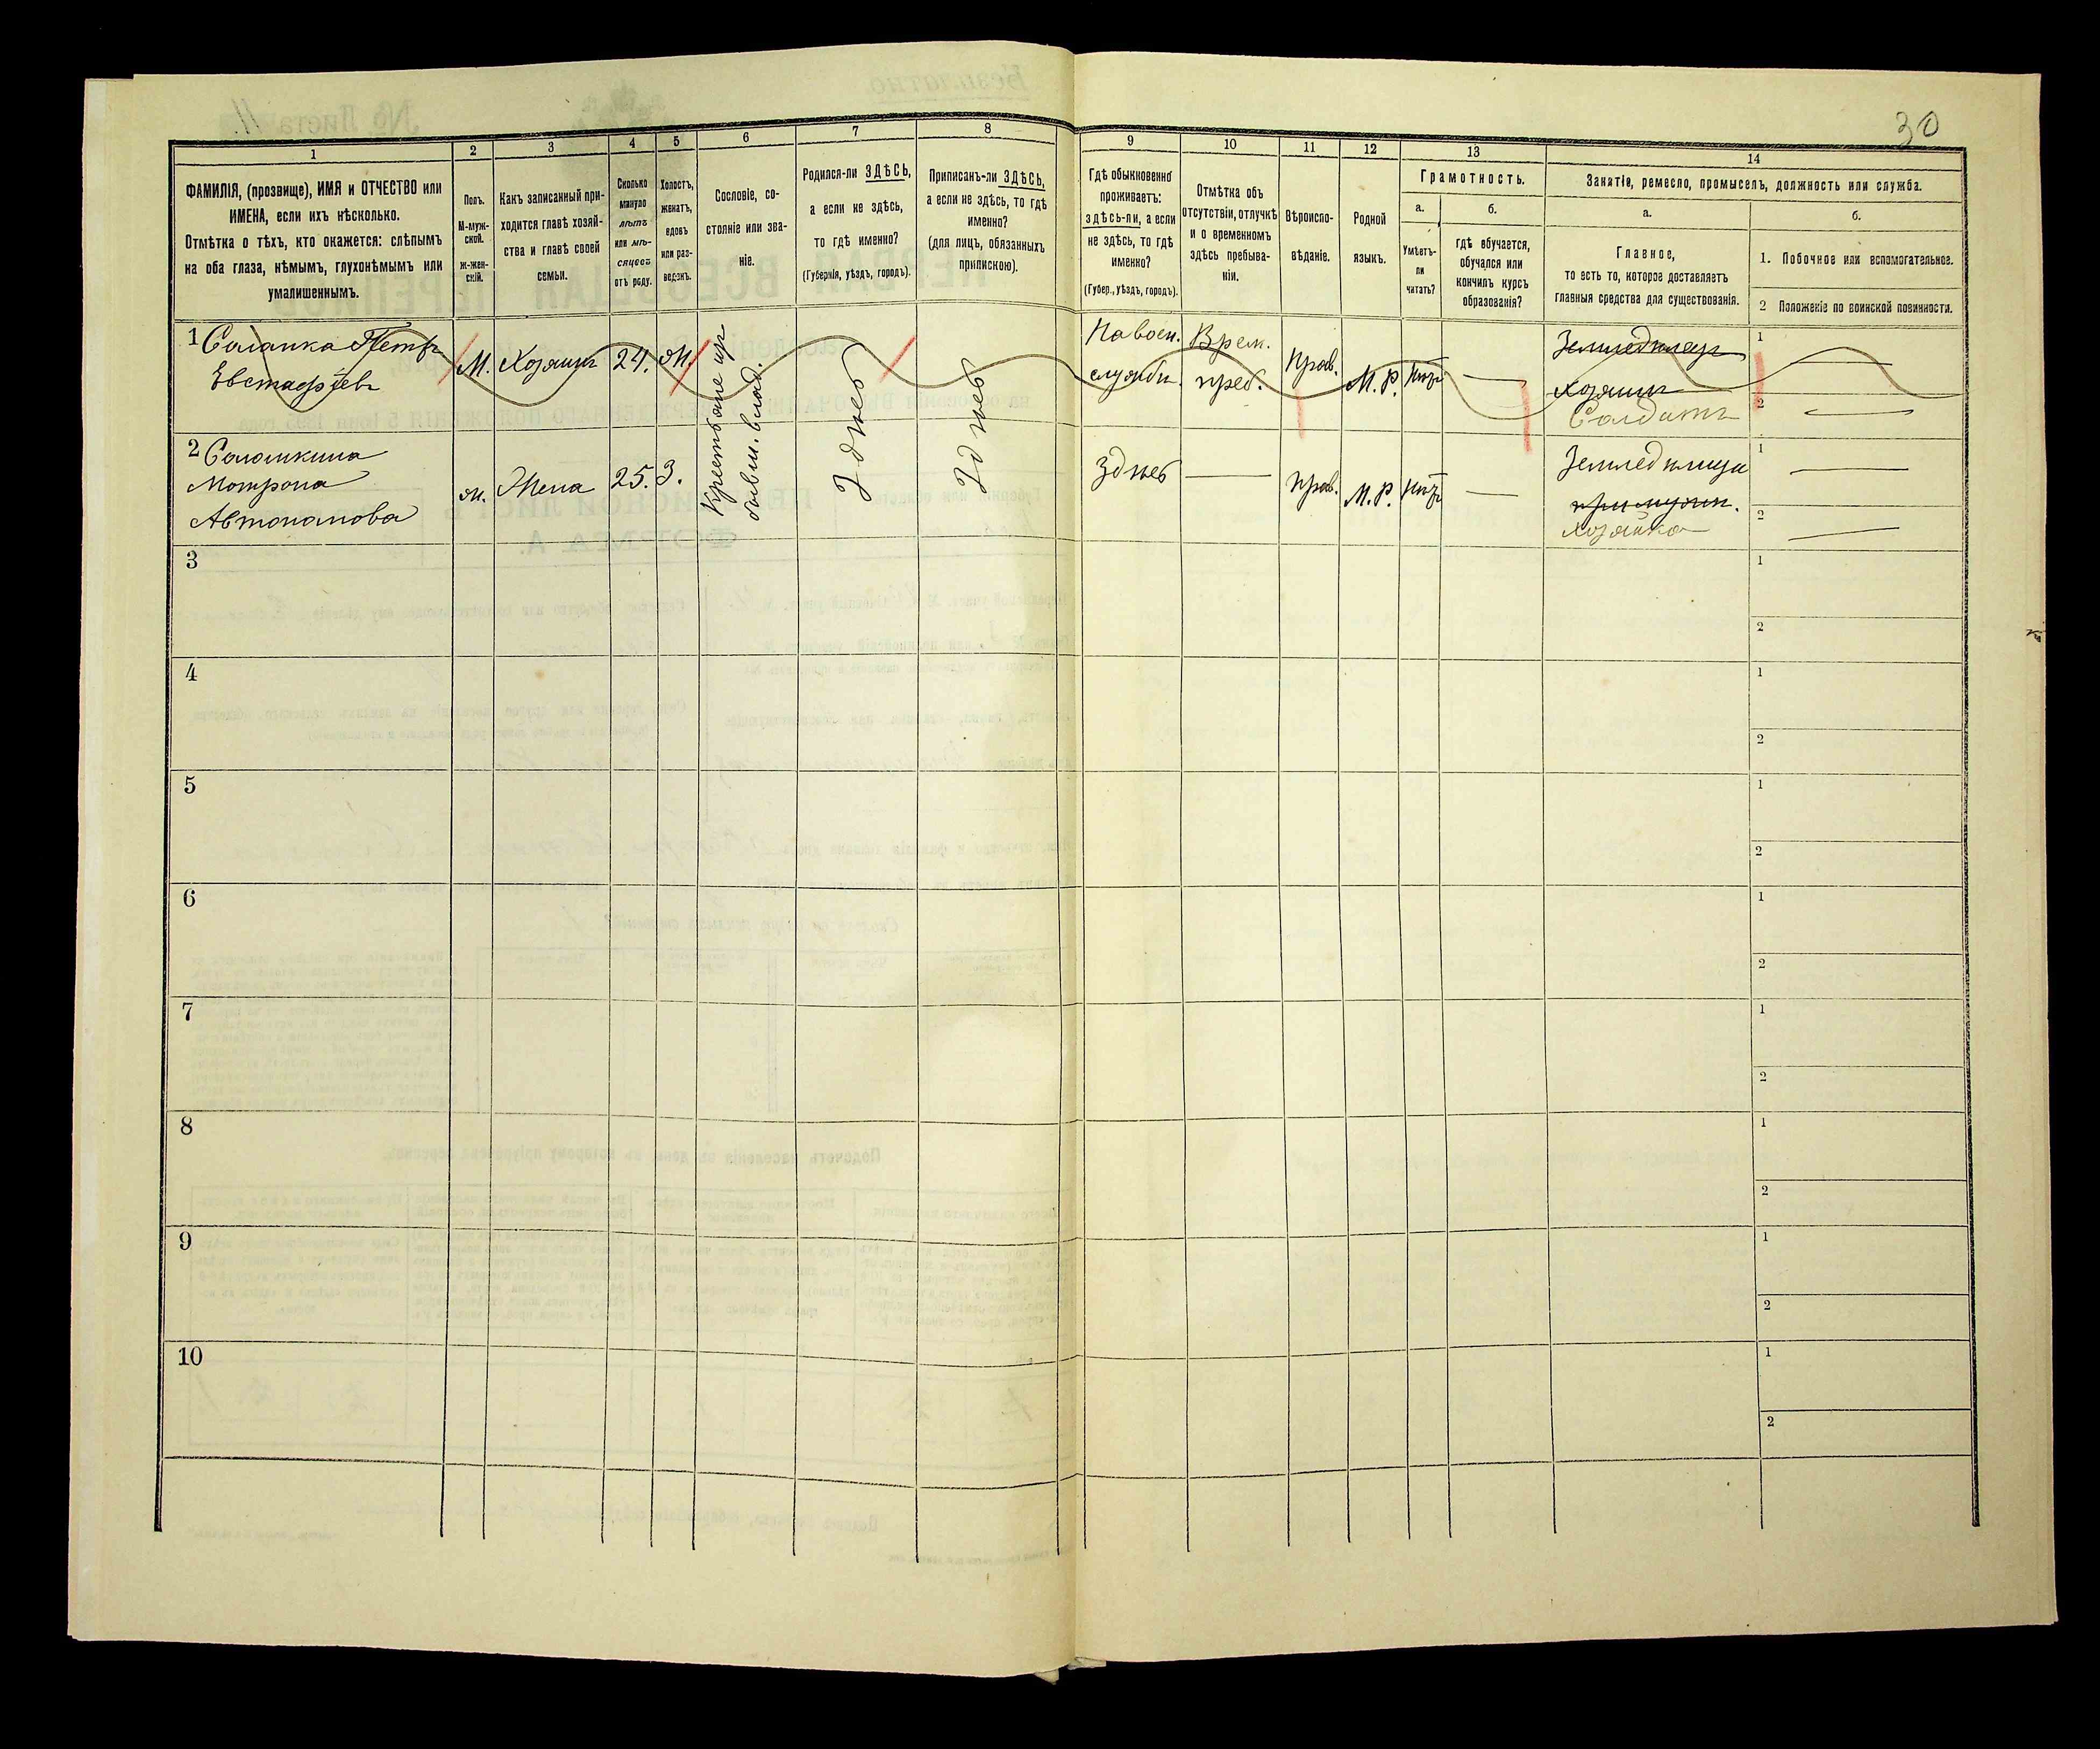 30
1
2
3
4
5
6
7
8
9
10
11
12
13
14
ФАМИЛІЯ, (прозвище), ИМЯ и ОТЧЕСТВО или
ИМЕНА, если ихъ нѣсколько.
Отмѣтка о тѣхъ, кто окажется: слѣпымъ
на оба глаза, нѣмымъ, глухонѣмымъ или
умалишеннымъ.
Полъ.
М-муж-
ской.
ж-жен-
скій.
Какъ записанный при-
ходится главѣ хозяй-
ства и главѣ своей
семьи.
Сколько
минуло
лѣтъ
или мѣ-
сяцевъ
отъ роду.
Холостъ,
женатъ,
вдовъ
или раз-
веденъ.
Сословіе, со-
стояніе или зва-
ніе.
Родился-ли ЗДѢСЬ,
а если не здѣсь,
то гдѣ именно?
(Губернія, уѣздъ, городъ).
Приписанъ-ли ЗДѢСЬ,
а если не здѣсь, то гдѣ
именно?
(для лицъ, обязанныхъ
припискою).
Гдѣ обыкновенно
проживаетъ:
здѣсь-ли, а если
не здѣсь, то гдѣ
именно?
(Губер., уѣздъ, городъ).
Отмѣтка объ
отсутствіи, отлучкѣ
и о временномъ
здѣсь пребыва-
ніи.
Вѣроиспо-
вѣданіе.
Родной
языкъ.
Грамотность.
а.
Умѣетъ-
ли
читать?
б.
гдѣ обучается,
обучался или
кончилъ курсъ
образованія?
Занятіе, ремесло, промыселъ, должность или служба.
а.
Главное,
то есть то, которое доставляетъ
главныя средства для существованія.
б.
1. Побочное или вспомогательное.
2 Положеніе по воинской повинности.
1 Саланка Петръ
Евстафіевъ
М. Хозяинъ 24. Ж.
Крестьяне изъ
бывш. влад.
Здѣсь
Здѣсь
На воен.
службѣ.
Врем.
преб.
Прав.
М. Р.
Нѣтъ
Земледѣлецъ
хозяинъ
Солдатъ
1
2
2
Мотрона
Автономова
ж. Жена 25. З.
Здѣсь
Прав.
М. Р.
Нѣтъ
хозяйка
1
2
3
1
2
4
1
2
5
1
2
6
1
2
7
1
2
8
1
2
9
1
2
10
1
2